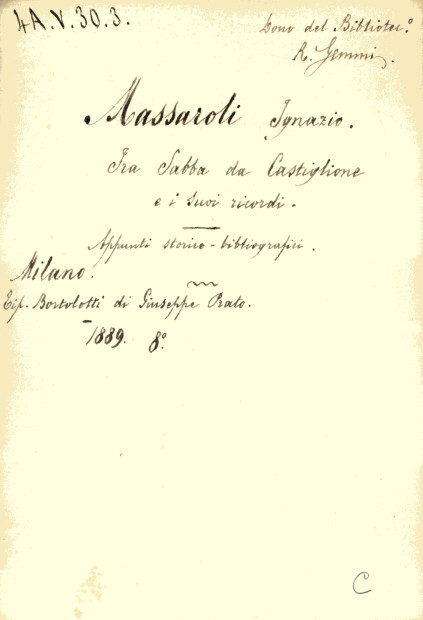 4A.V.30.3.
Dono del Bibliotec.º
R. Gemmi.
Massaroli Ignazio.
Fra Sabba da Castiglione
e i suoi ricordi.
Appunti storico-bibliografici.
Milano.
Tip. Bortolotti di Giuseppe Prato.
1889. 8º.
C